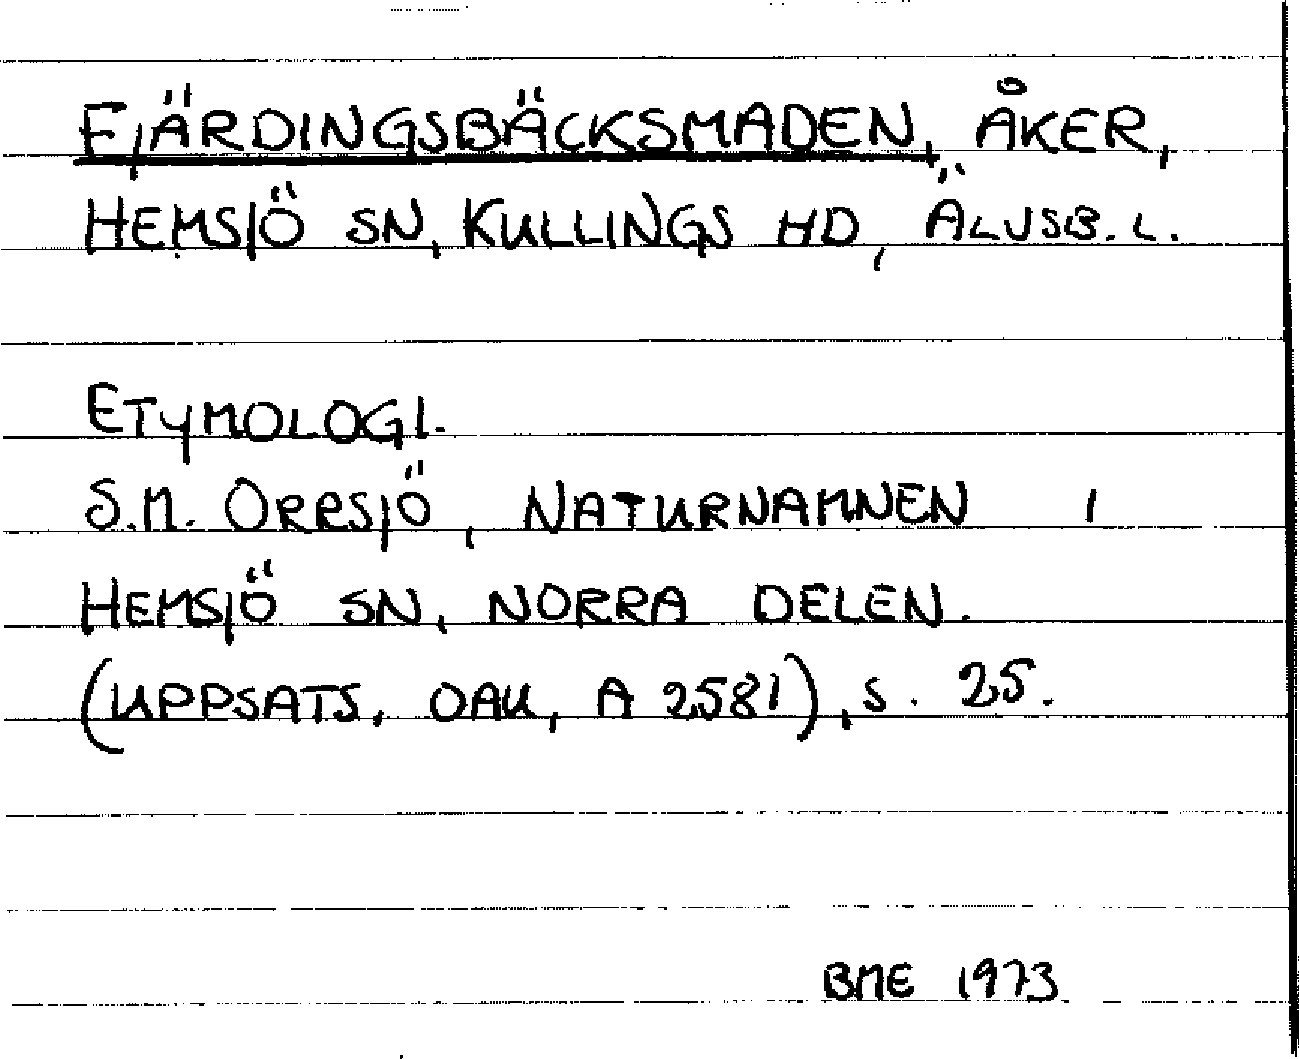 FJÄRDINGSBÄCKSMADEN, ÅKER,
HEMSJÖ SN, KULLINGS HD, ÄLVSB. L.
ETYMOLOGI.
S.M. ORRSJÖ, NATURNAMNEN I
HEMSJÖ SN, NORRA DELEN.
(UPPSATS, OAU, A 2581), S. 25.
BME 1973